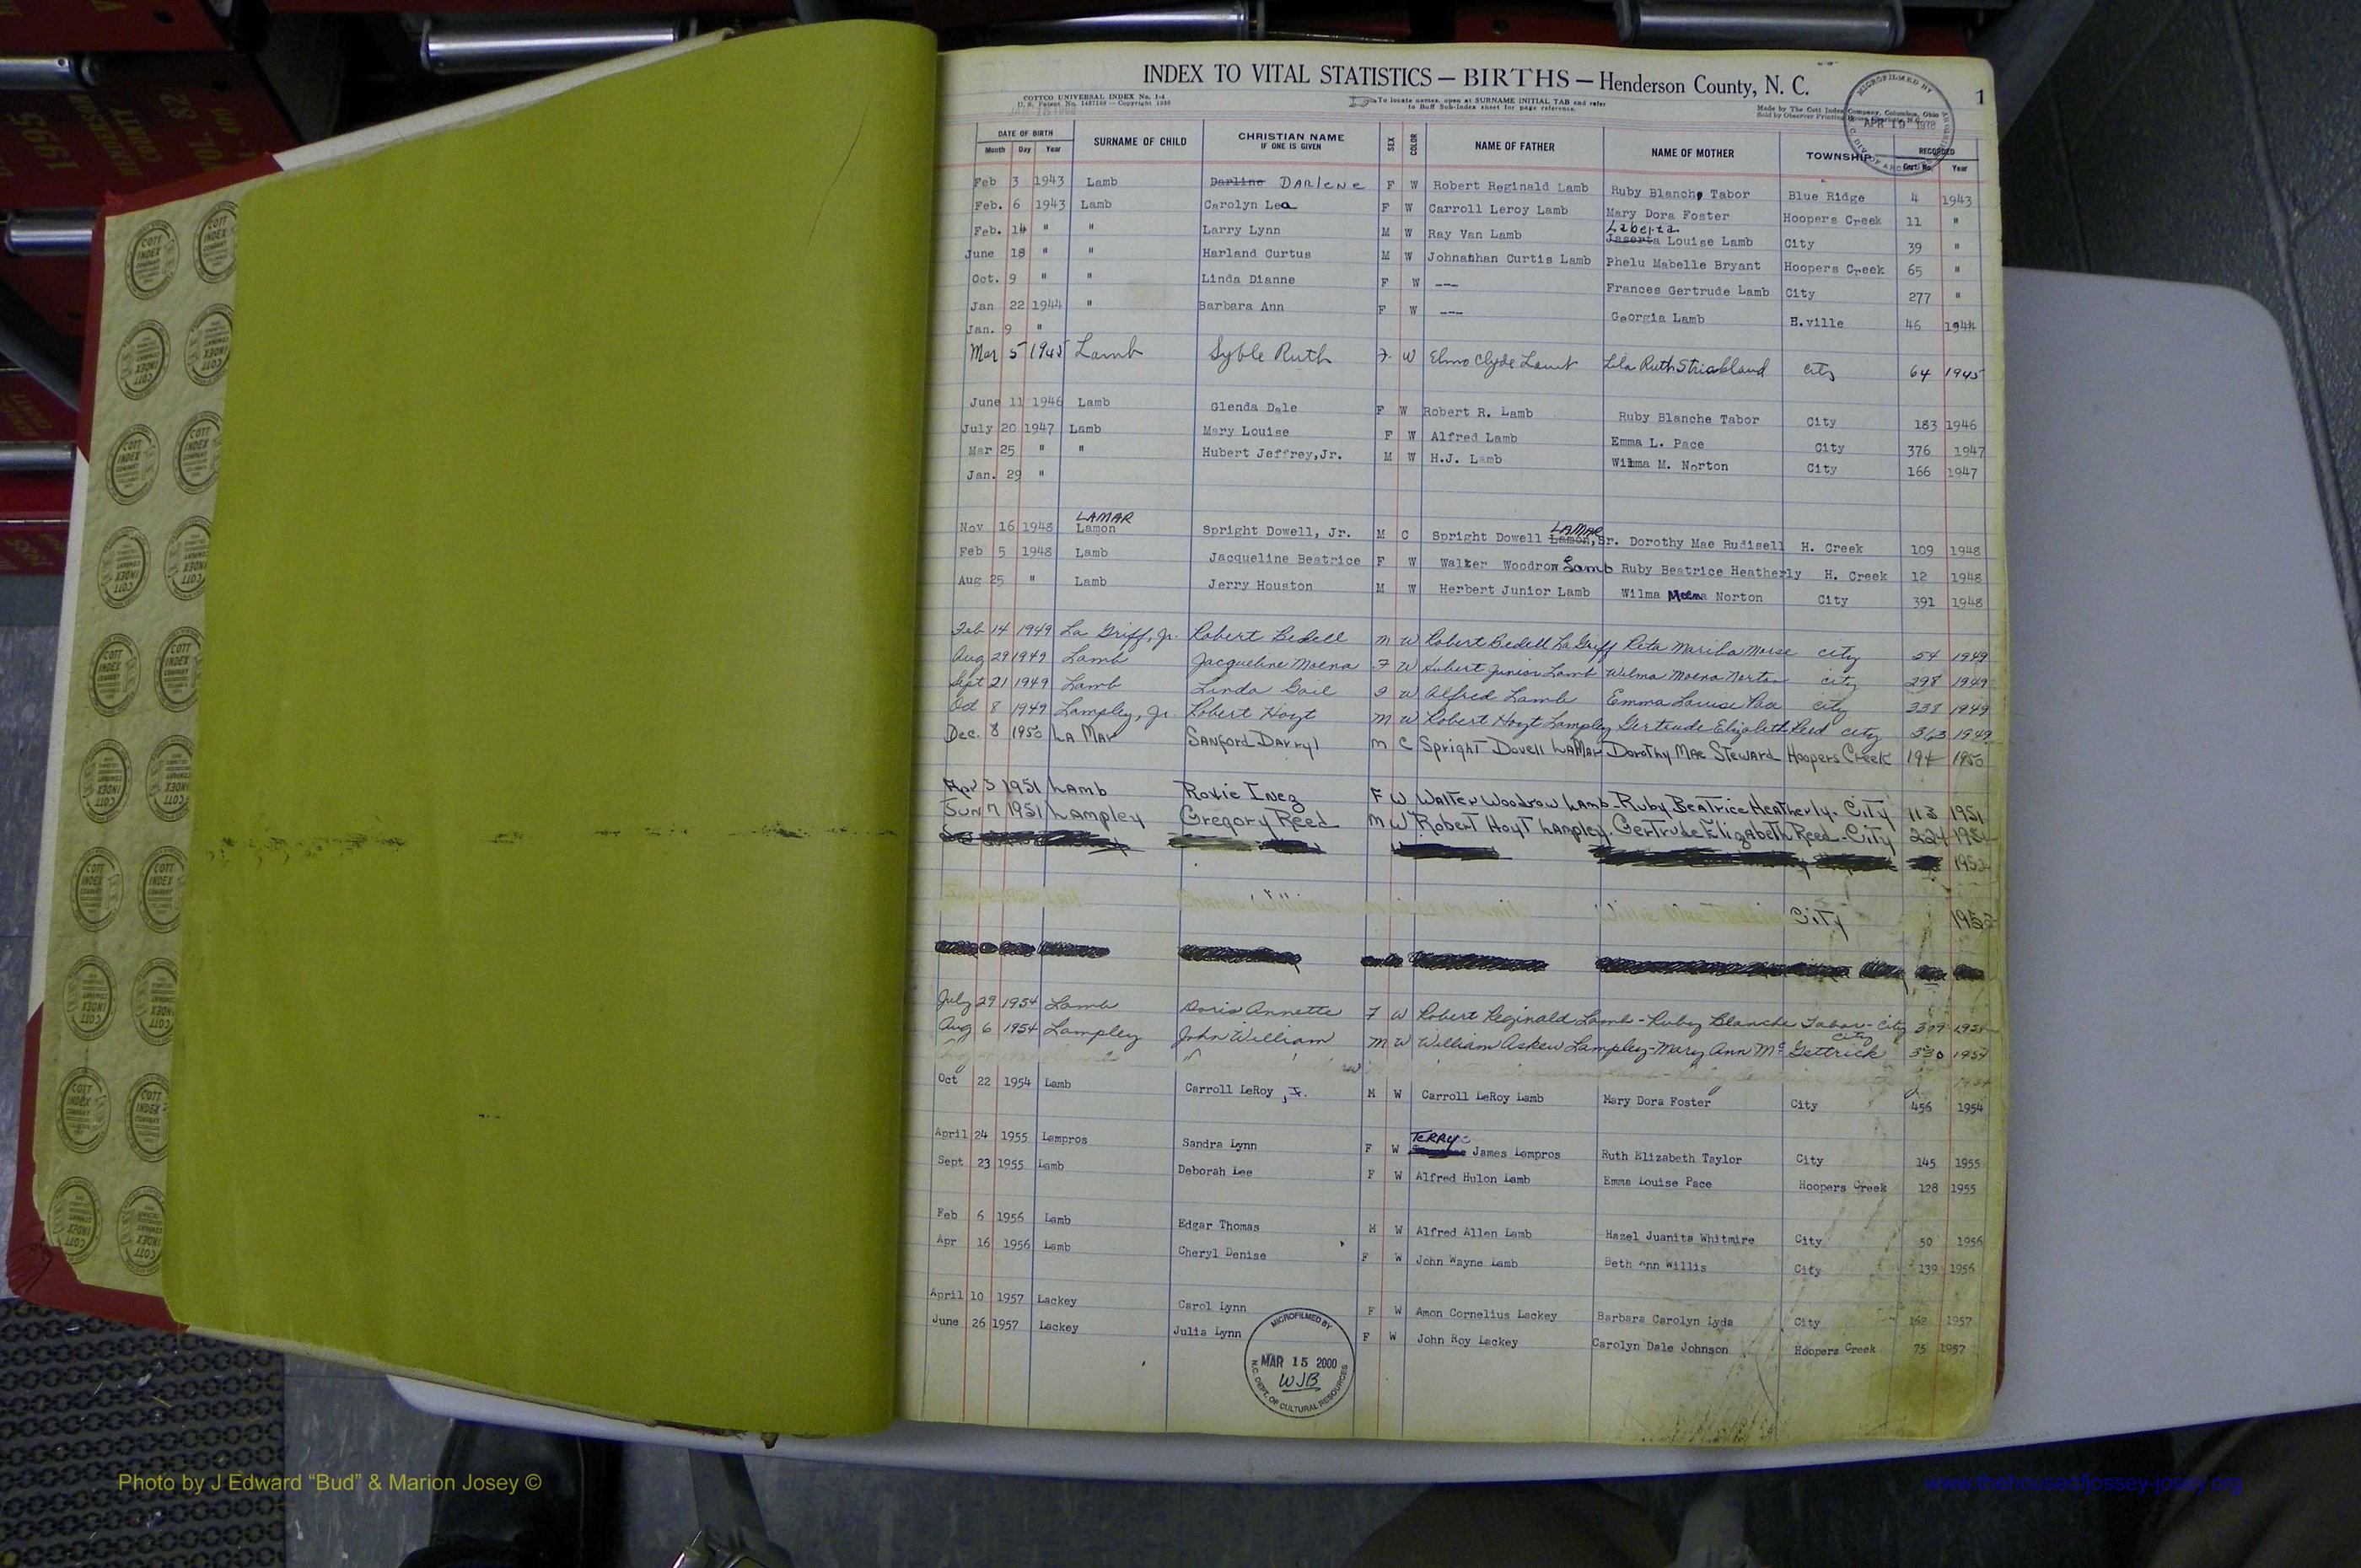 INDEX TO VITAL STATISTICS — BIRTHS — Henderson County, N. C.
1
COTTCO UNIVERSAL INDEX No. 1-4
U. S. Patent No. 1487169 — Copyright 1930
To locate names, open at SURNAME INITIAL TAB and refer
to Buff Sub-Index sheet for page reference.
Made by The Cott Index Company, Columbus, Ohio
Sold by Observer Printing House, Charlotte, N.C.
MICROFILMED BY
APR 19 1978
DATE OF BIRTH SURNAME OF CHILD CHRISTIAN NAME IF ONE IS GIVEN SEX COLOR NAME OF FATHER NAME OF MOTHER TOWNSHIP RECORDED
Month Day Year Cert. No. Year
Feb 3 1943 Lamb Darline DARleNe F W Robert Reginald Lamb Ruby Blanche Tabor Blue Ridge 4 1943
Feb. 6 1943 Lamb Carolyn Lea F W Carroll Leroy Lamb Mary Dora Foster Hoopers Creek 11 "
Feb. 14 " " Larry Lynn M W Ray Van Lamb Laberta Louise Lamb City 39 "
June 18 " " Harland Curtus M W Johnathan Curtis Lamb Phelu Mabelle Bryant Hoopers Creek 65 "
Oct. 9 " " Linda Dianne F W --- Frances Gertrude Lamb City 277 "
Jan 22 1944 " Barbara Ann F W --- Georgia Lamb H.ville 46 1944
Jan. 9 "
Mar 5 1945 Lamb Syble Ruth F. W Elmo Clyde Lamb Lila Ruth Strickland City 64 1945
June 11 1946 Lamb Glenda Dale F W Robert R. Lamb Ruby Blanche Tabor City 183 1946
July 20 1947 Lamb Mary Louise F W Alfred Lamb Emma L. Pace City 376 1947
Mar 25 " " Hubert Jeffrey,Jr. M W H.J. Lamb Wilma M. Norton City 166 1947
Jan. 29 "
LAMAR LAMAR
Nov 16 1948 Lamon Spright Dowell, Jr. M C Spright Dowell Lamon,Sr. Dorothy Mae Rudisell H. Creek 109 1948
Feb 5 1948 Lamb Jacqueline Beatrice F W Walker Woodrow Lamb Ruby Beatrice Heatherly H. Creek 12 1948
Aug 25 " Lamb Jerry Houston M W Herbert Junior Lamb Wilma Norton City 391 1948
Feb 14 1949 La Griff, Jr. Robert Bedell M W Robert Bedell La Griff Reta Mariba Morse City 54 1949
Aug 29 1949 Lamb Jacqueline Moena F W Hubert Junior Lamb Wilma Moena Norton City 298 1949
Sept 21 1949 Lamb Linda Gail F W Alfred Lamb Emma Louise Pace City 338 1949
Oct 8 1949 Lampley, Jr. Robert Hoyt M W Robert Hoyt Lampley Gertrude Elizabeth Reed City 363 1949
Dec. 8 1950 La Mar SANford Darryl M C Spright Dowell LaMar Dorothy Mae Steward Hoopers Creek 194 1950
Apr 3 1951 Lamb Roxie Inez F W Walter Woodrow Lamb-Ruby Beatrice Heatherly. City 113 1951
Jun 7 1951 Lampley Gregory Reed M W Robert Hoyt Lampley. Gertrude Elizabeth Reed-City 224 1951
195
William Willie Mae City 195
July 29 1954 Lamb Doris Annette F W Robert Reginald Lamb-Ruby Blanche Tabor-City 309 1954
Aug 6 1954 Lampley John William M W William Askew Lampley-Mary Ann McGettrick City 330 1954
Oct 22 1954 Lamb Carroll LeRoy, Jr. M W Carroll LeRoy Lamb Mary Dora Foster City 456 1954
April 24 1955 Lampros Sandra Lynn F W TERRY James Lampros Ruth Elizabeth Taylor City 145 1955
Sept 23 1955 Lamb Deborah Lee F W Alfred Hulon Lamb Emma Louise Pace Hoopers Creek 128 1955
Feb 6 1956 Lamb Edgar Thomas M W Alfred Allen Lamb Hazel Juanita Whitmire City 50 1956
Apr 16 1956 Lamb Cheryl Denise F W John Wayne Lamb Beth Ann Willis City 139 1956
April 10 1957 Lackey Carol Lynn F W Amon Cornelius Lackey Barbara Carolyn Lyda City 162 1957
June 26 1957 Lackey Julia Lynn F W John Roy Lackey Carolyn Dale Johnson Hoopers Creek 75 1957
MICROFILMED BY
MAR 15 2000
WJB
N.C. DEPT. OF CULTURAL RESOURCES
Photo by J Edward “Bud” & Marion Josey ©
www.thehouseofjossey-josey.org